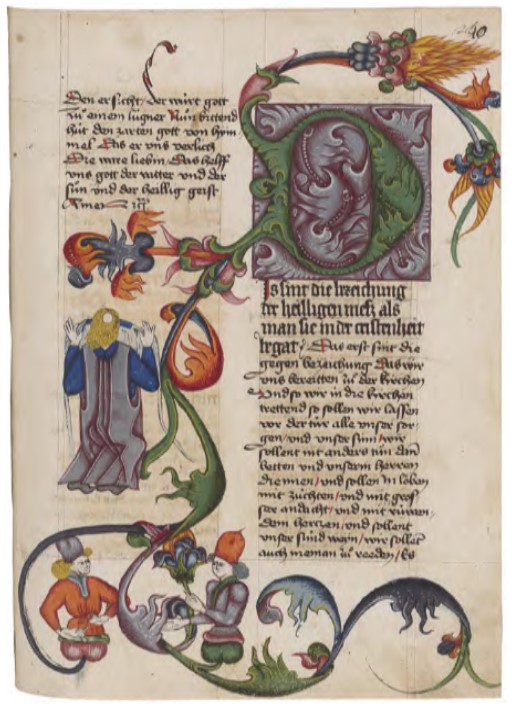 Den er sicht / der würt gott
zu einem lugner Nun bittend
hüt den zarten gott von hym-
mel Das er vns verlich
Die ware liebin / Das helff
vns gott der vatter vnd der
sun vnd der heillig geist
Amen
Is sint die bezeichung
der heilligen meß als
man sie in der cristenheit
begat / Das erst sint die
gegen bezaichung Das wir
vns bereitten zu der kirchen
Vnd so wir in die kirchen
trettend so sollen wir lassen
vor der tür alle vnser sor-
gen / vnd vnser sinn / wir
sollent nit anders tün dan
betten vnd vnserm herren
dienen / vnd sollen in loben
mit züchten / vnd mit gros-
ser andacht / vnd mit
dem hertzen / vnd sollent
vnser sünd / wir sollent
auch nieman zu reden / Es